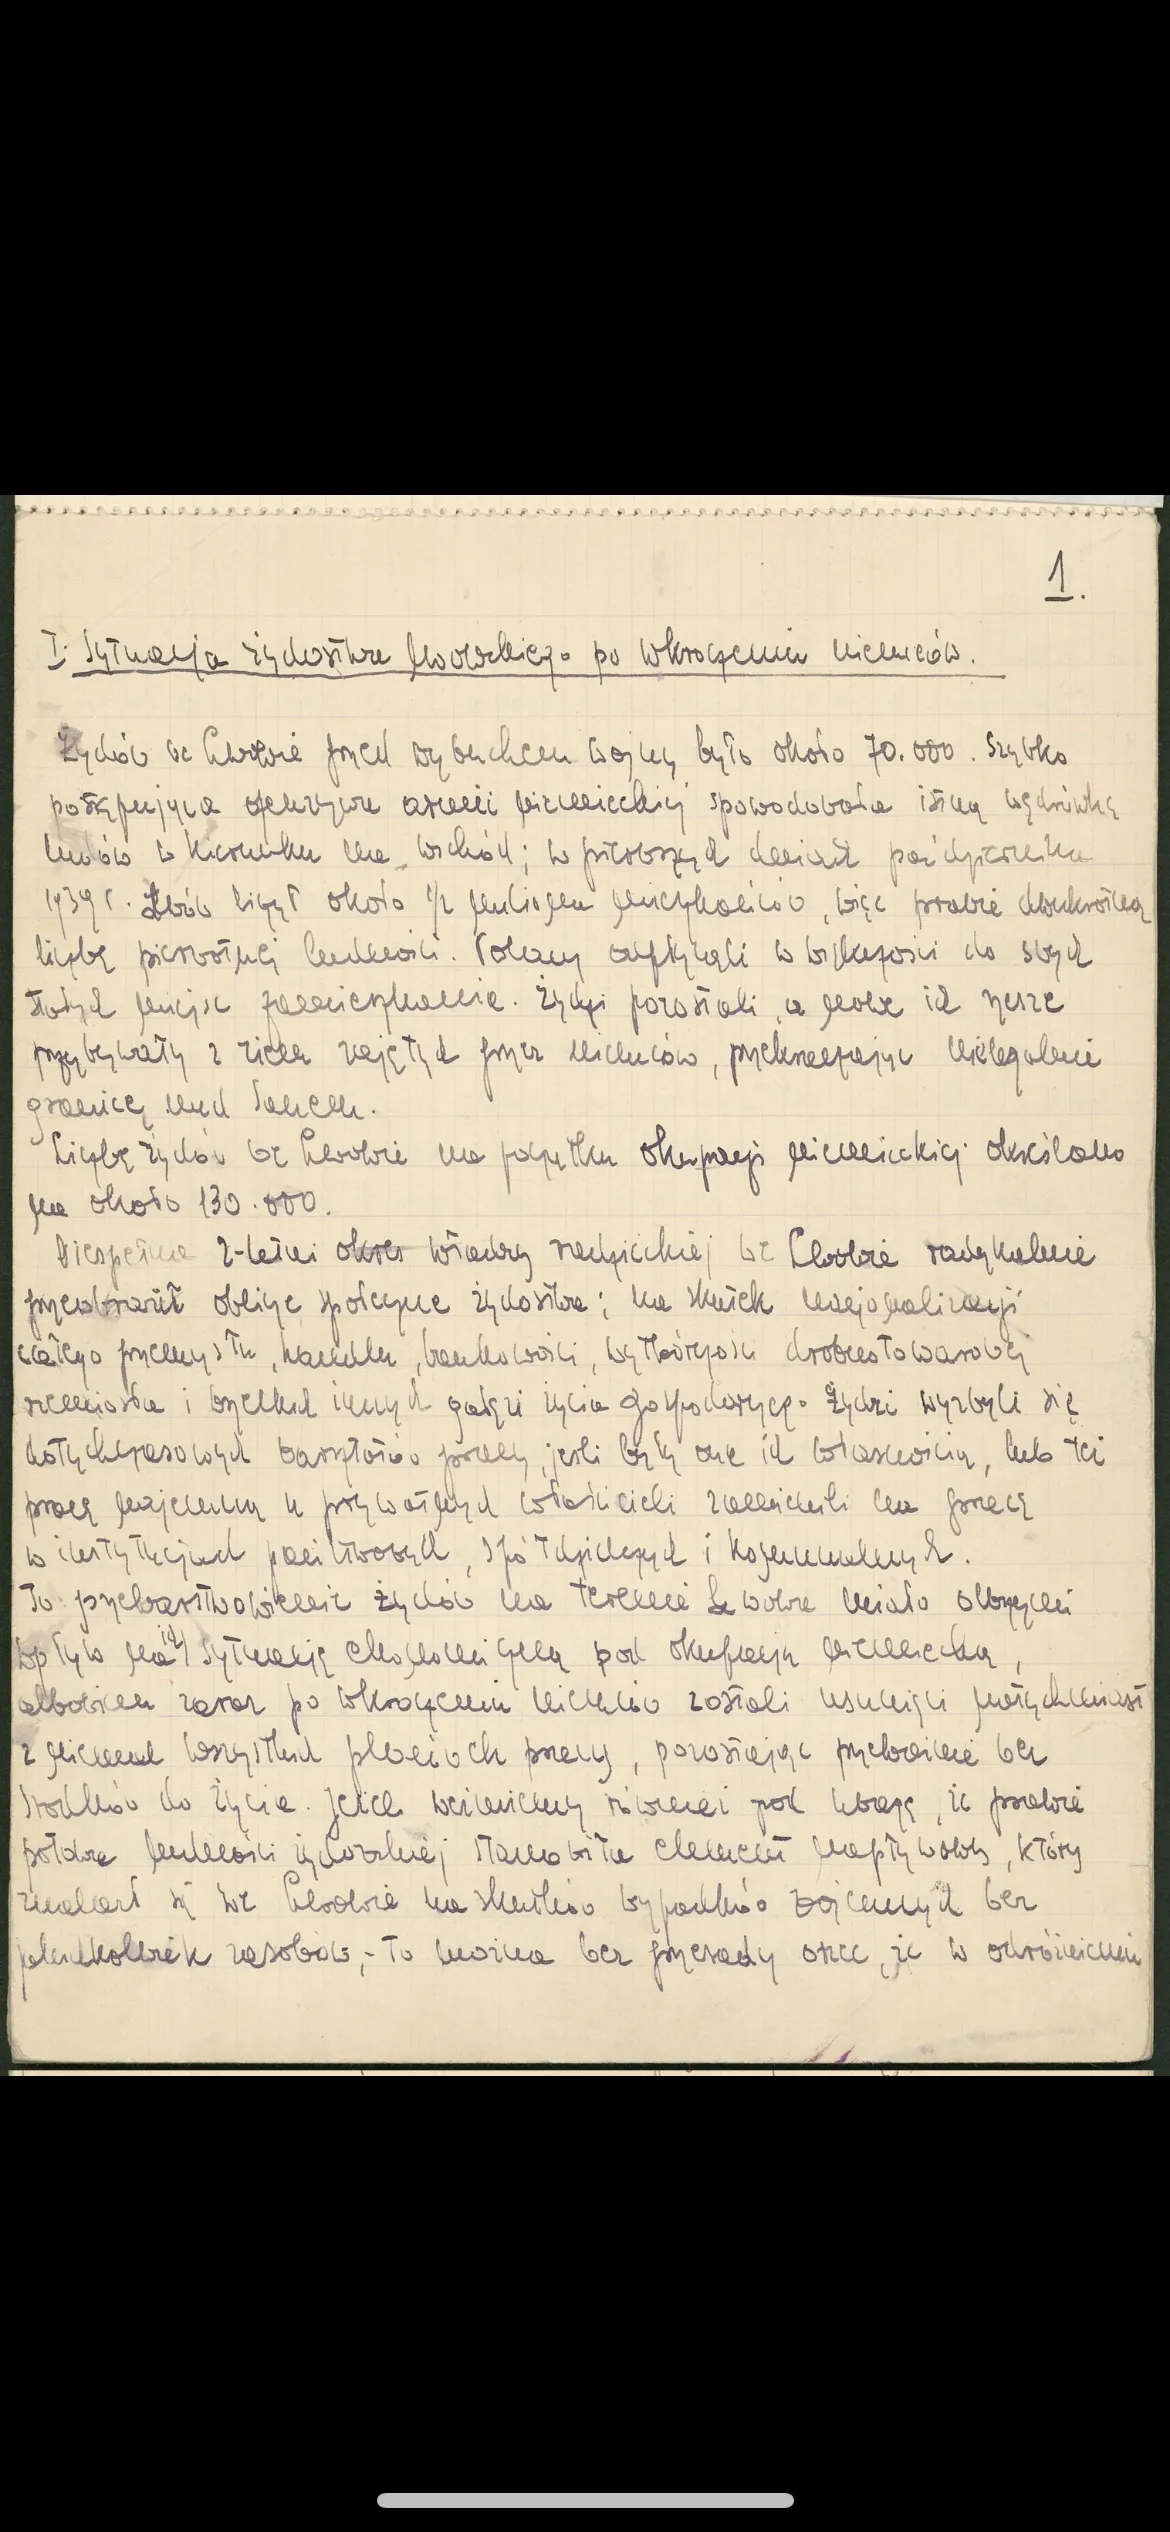 1.
I. Sytuacja żydostwa lwowskiego po wkroczeniu niemców.
Żydów we Lwowie przed wybuchem wojny było około 70.000. Szybko
postępująca ofenzywa armii niemieckiej spowodowała istną wędrówkę
ludów w kierunku na wschód; w pierwszych dniach października
1939 r. Lwów liczył około 1/2 miliona mieszkańców, więc prawie dwukrotną
liczbę pierwotnej ludności. Polacy odpłynęli w większości do swych
stałych miejsc zamieszkania. Żydzi pozostali, a nowe ich rzesze
przybywały z ziem zajętych przez niemców, przekraczając nielegalnie
granicę nad Sanem.
Liczbę żydów we Lwowie na początku okupacji niemieckiej określano
na około 130.000.
Niespełna 2-letni okres władzy radzieckiej we Lwowie radykalnie
przeobraził oblicze społeczne żydostwa; na skutek nacjonalizacji
całego przemysłu, handlu, bankowości, wytwórczości drobnotowarowej
rzemiosła i wszelkich innych gałęzi życia gospodarczego żydzi wyzbyli się
dotychczasowych warsztatów pracy, jeśli były one ich własnością, lub też
pracę najemną u prywatnych właścicieli zamienili na pracę
w instytucjach państwowych, spółdzielczych i komunalnych.
To przewarstwowienie żydów na terenie Lwowa miało olbrzymi
wpływ na ich sytuację ekonomiczną pod okupacją niemiecką,
albowiem zaraz po wkroczeniu niemców zostali usunięci natychmiast
z niemal wszystkich placówek pracy, pozostając przeważnie bez
środków do życia. Jeżeli weźmiemy również pod uwagę, iż prawie
połowę ludności żydowskiej stanowił element napływowy, który
znalazł się we Lwowie na skutków wypadków wojennych bez
jakichkolwiek zasobów, - to można bez przesady orzec, że w odróżnieniu